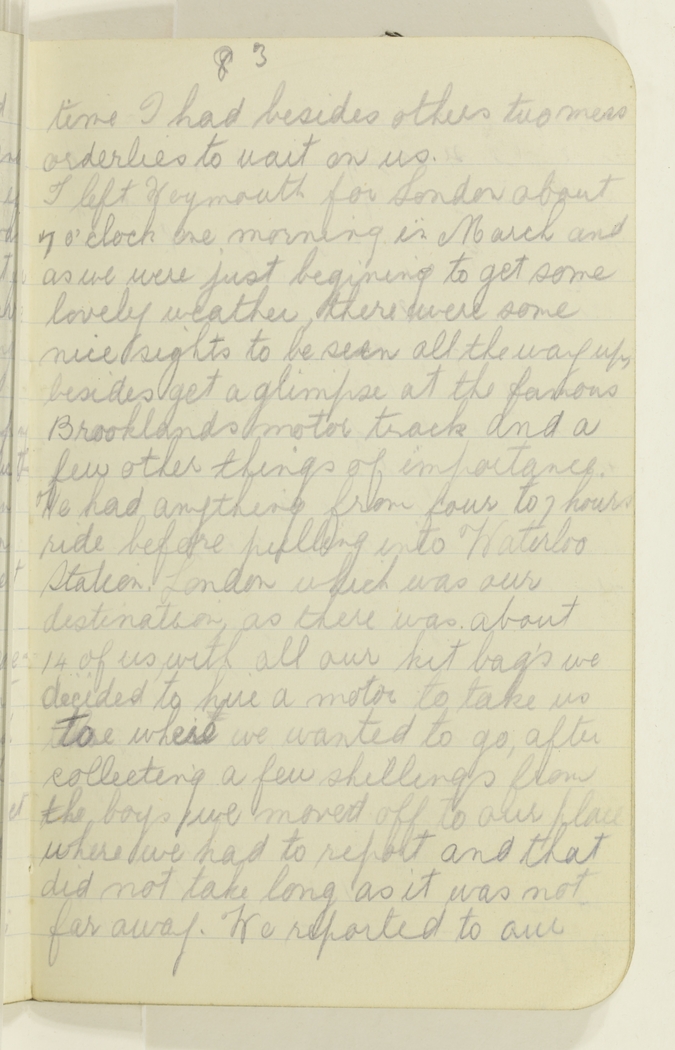 83
time I had besides others two mess
orderlies to wait on us.
I left Weymouth for London about
7 o'clock one morning in March and
as we were just begining to get some
lovely weather, there were some
nice sights to be seen all the way up,
besides get a glimpse at the famous
Brooklands motor track and a
few other things of importance.
We had anything from four to 7 hours
ride before pulling into Waterloo
Station. London which was our
destination, as there was about
14 of us with all our kit bag's we
decided to hire a motor to take us
to where we wanted to go, after
collecting a few shillings from
the boys we moved off to our place
where we had to report and that
did not take long as it was not
far away. We reported to our